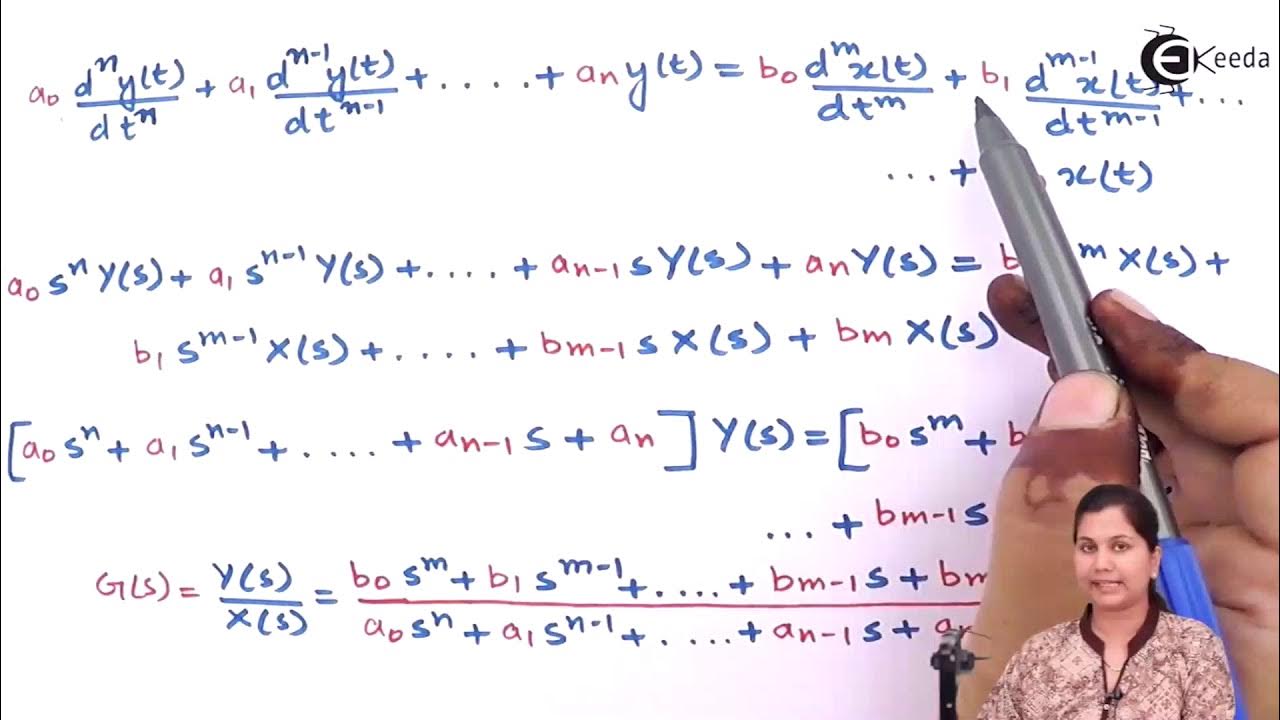 a₀ dⁿy(t)/dtⁿ + a₁ dⁿ⁻¹y(t)/dtⁿ⁻¹ + .... + aₙ y(t) = b₀ dᵐx(t)/dtᵐ + b₁ dᵐ⁻¹x(t)/dtᵐ⁻¹ + ...
... + x(t)
a₀ sⁿ Y(s) + a₁ sⁿ⁻¹ Y(s) + .... + aₙ₋₁ s Y(s) + aₙ Y(s) = b ᵐ X(s) +
b₁ sᵐ⁻¹ X(s) + .... + bₘ₋₁ s X(s) + bₘ X(s)
[a₀ sⁿ + a₁ sⁿ⁻¹ + .... + aₙ₋₁ s + aₙ] Y(s) = [b₀ sᵐ + b
... + bₘ₋₁ s
G(s) = Y(s)/X(s) = b₀ sᵐ + b₁ sᵐ⁻¹ + .... + bₘ₋₁ s + bₘ / a₀ sⁿ + a₁ sⁿ⁻¹ + .... + aₙ₋₁ s + aₙ
Keeda